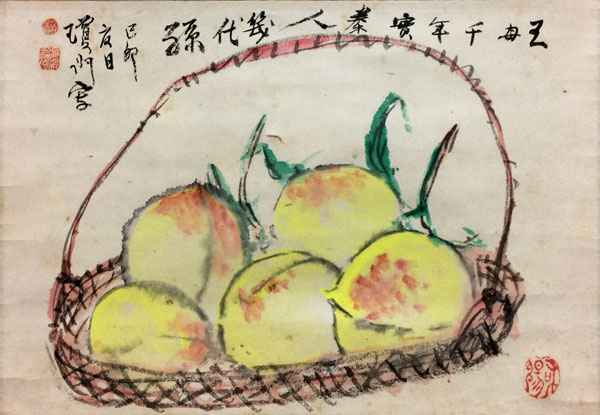 王母千年實秦人幾代孫
己卯
夏日
寫